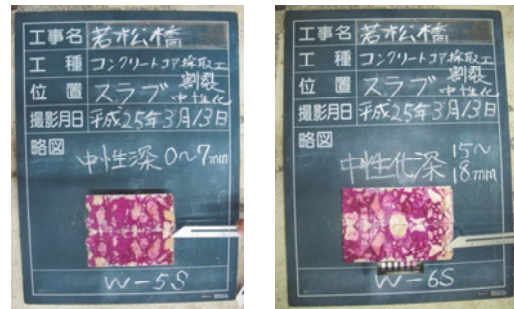 工事名 若松橋
工種 コンクリートコア採取工
位置 スラブ 割裂 中性化
撮影月日 平成25年3月13日
略図
中性深 0～7mm
W-5S
工事名 若松橋
工種 コンクリートコア採取工
位置 スラブ 割裂 中性化
撮影月日 平成25年3月13日
略図
中性化深 15～18mm
W-6S